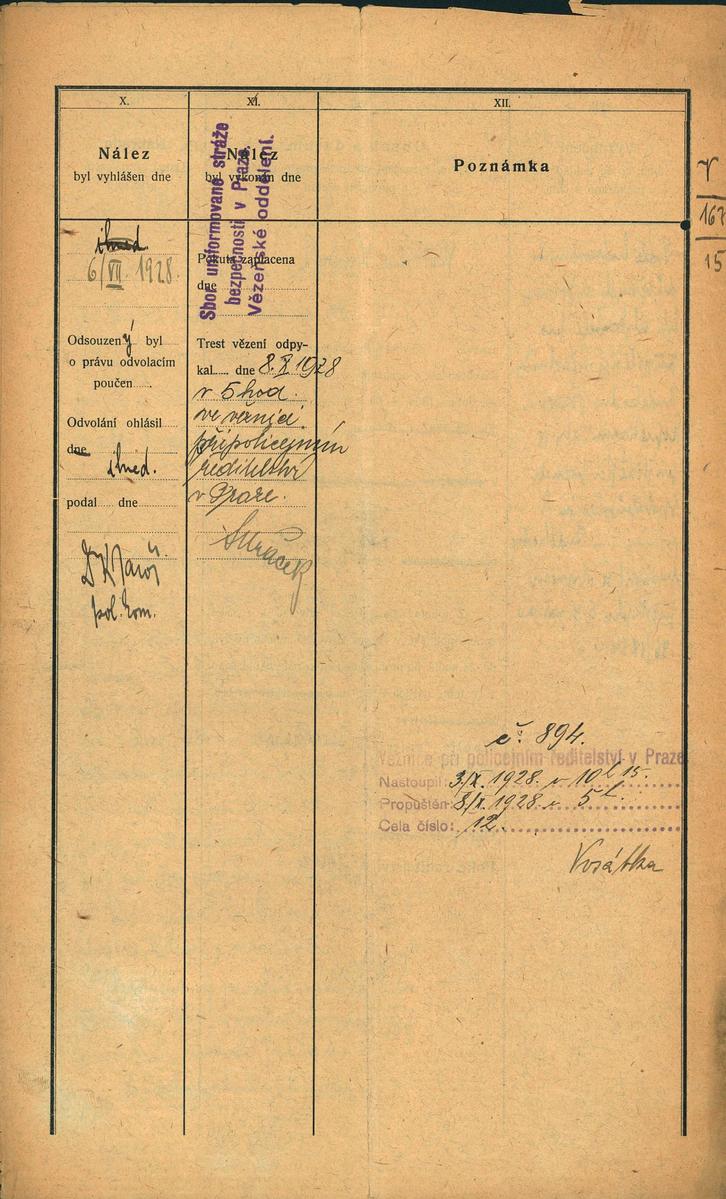 X.
Nález
byl vyhlášen dne
ihned.
6/VII. 1928.
Odsouzený byl
o právu odvolacím
poučen......
Odvolání ohlásil
dne
ihned.
podal dne
pol. kom.
XI.
Nález
byl vykonán dne
Sbor uniformované stráže
bezpečnosti v Praze.
Vězeňské oddělení.
Pokuta zaplacena
dne
Trest vězení odpy-
kal..... dne 8.X 1928
v 5 hod.
ve věznici
při policejním
ředitelství
v Praze.
XII.
Poznámka
č. 894.
Věznice při policejním ředitelství v Praze
Nastoupil: 3/X. 1928. v 10h 15.
Propuštěn: 8/X. 1928 v 5h.
Cela číslo: 12.
Vosátka
167
15